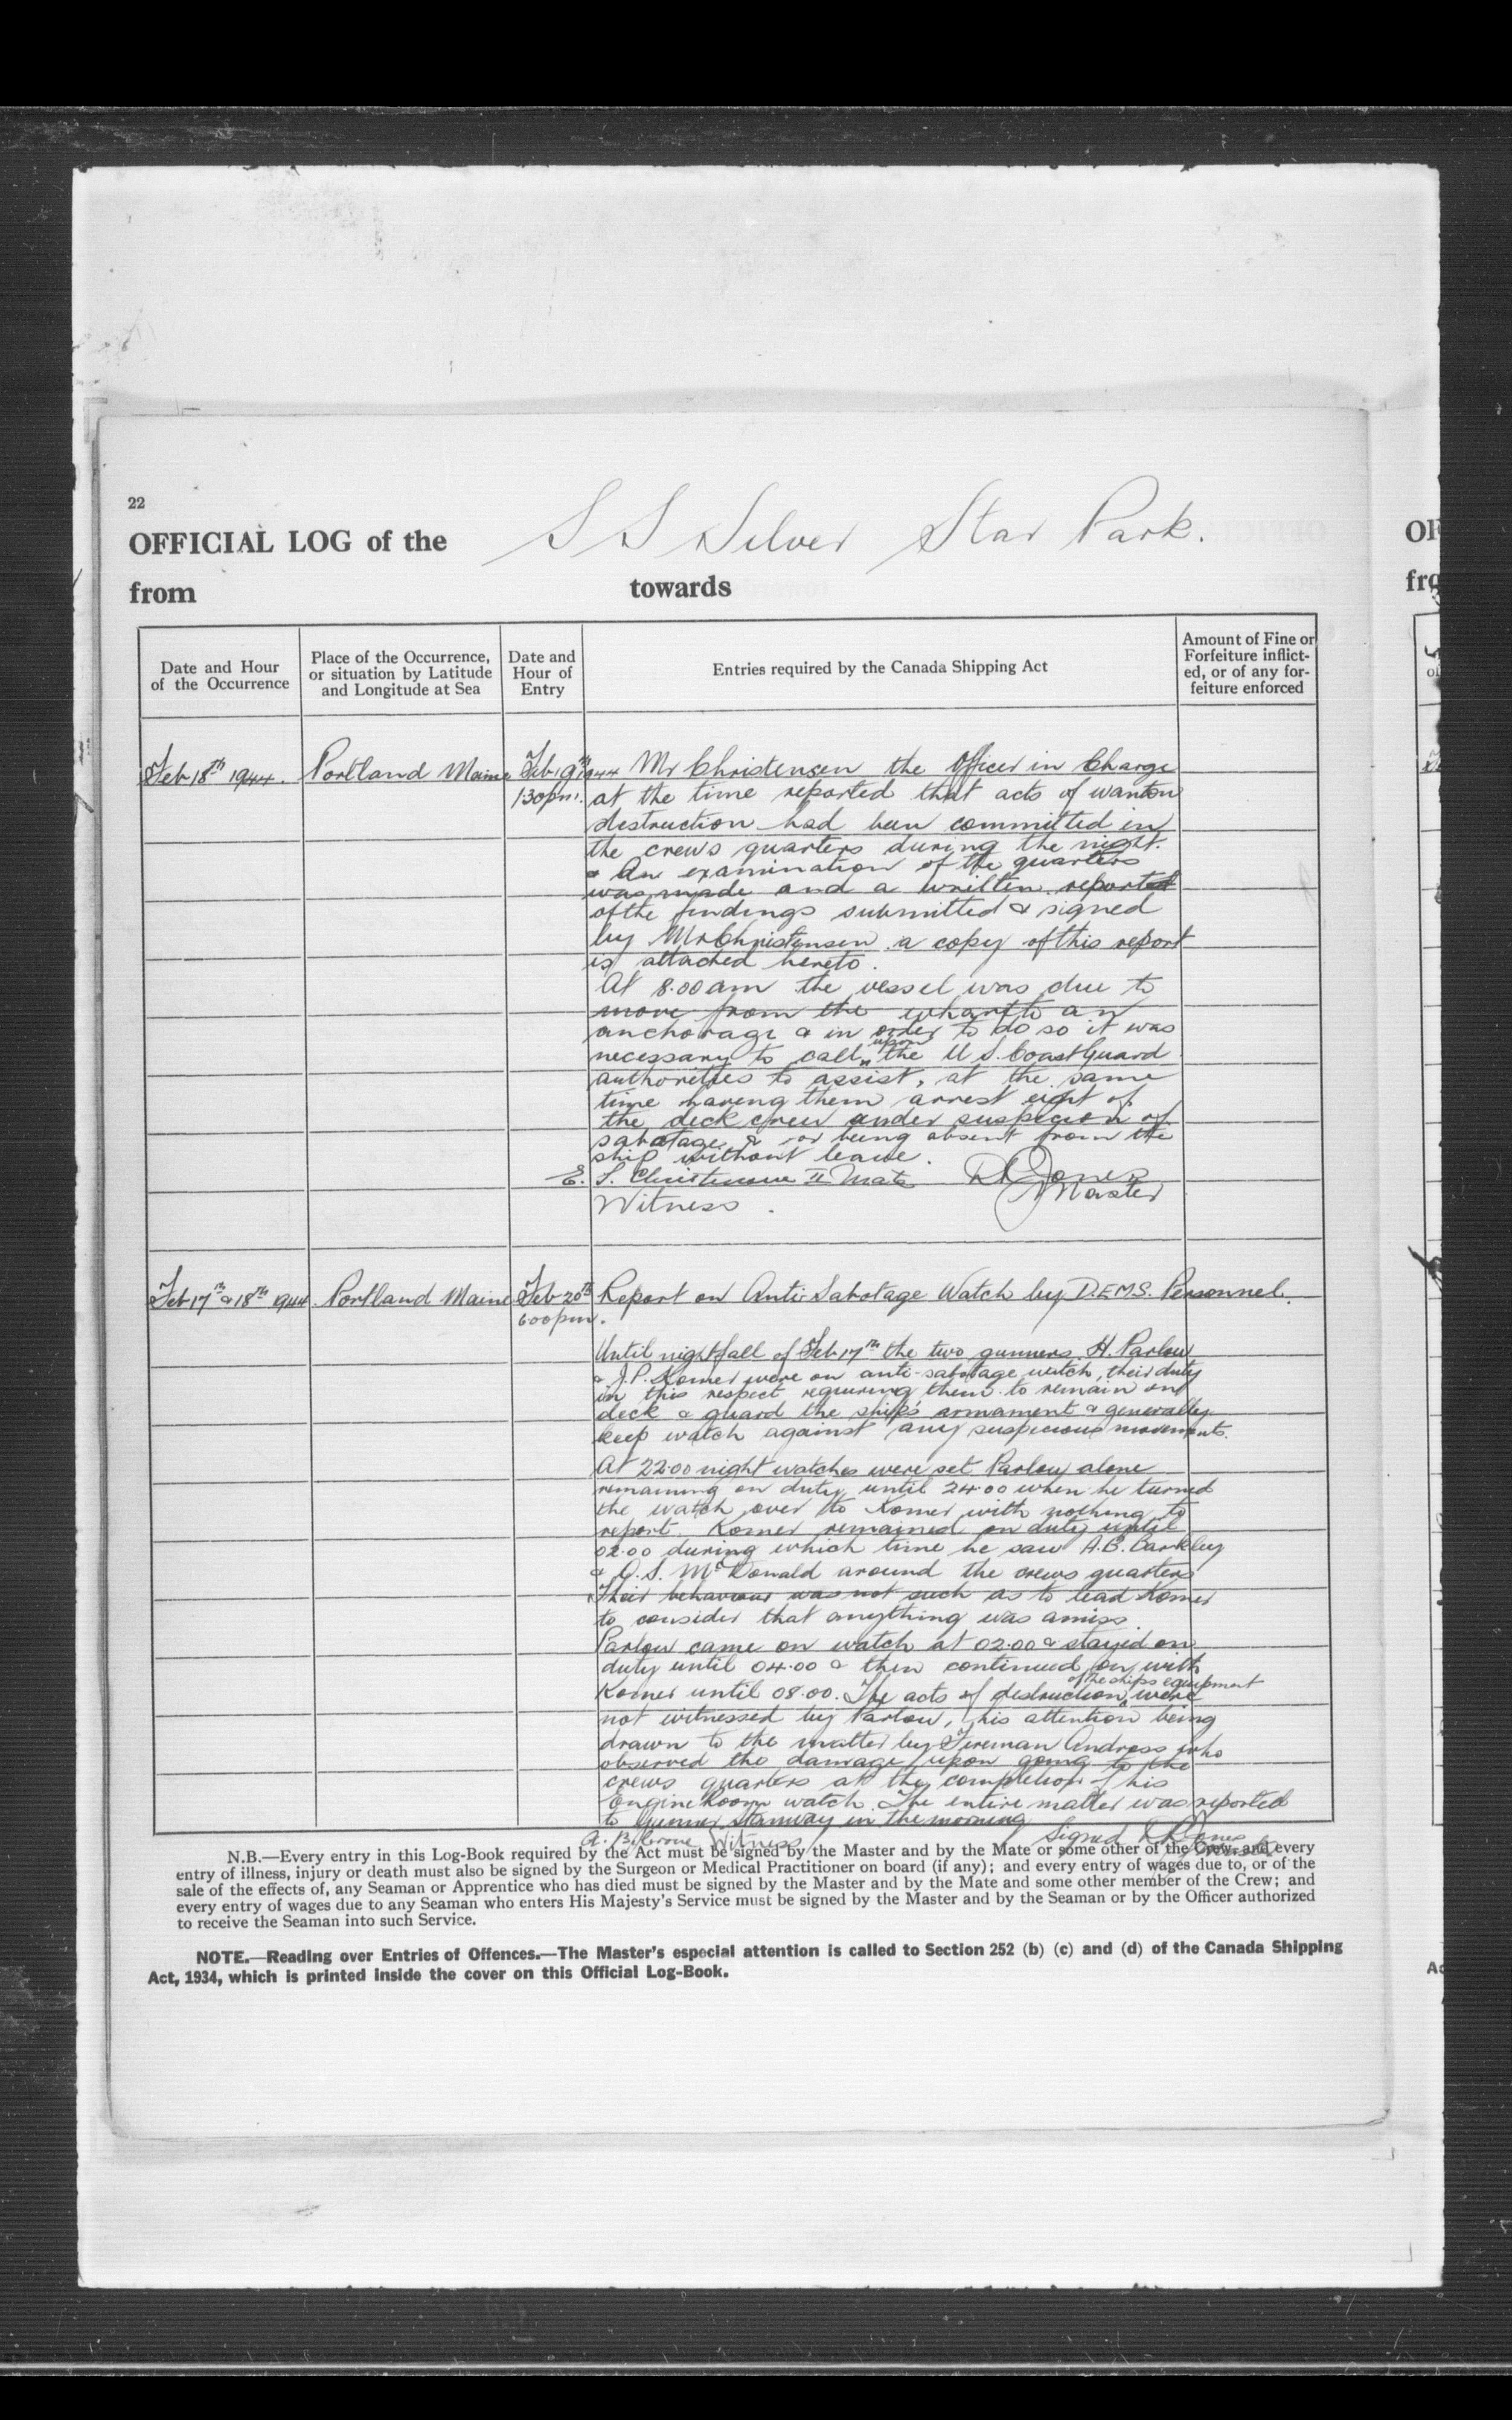 22
OFFICIAL LOG of the S S Silver Star Park.
from towards
Date and Hour of the Occurrence
Place of the Occurrence, or situation by Latitude and Longitude at Sea
Date and Hour of Entry
Entries required by the Canada Shipping Act
Amount of Fine or Forfeiture inflicted, or of any forfeiture enforced
Feb 18th 1944. Portland Maine Feb 19th 1944 Mr Christensen the Officer in Charge
1 30 pm. at the time reported that acts of wanton
destruction had been committed in
the crews quarters during the night.
& An examination of the quarters
was made and a written report
of the findings submitted & signed
by Mr Christensen. a copy of this report
is attached hereto.
At 8.00 am the vessel was due to
move from the wharf to an
anchorage & in order to do so it was
necessary to call upon the U S. Coast Guard
authorities to assist, at the same
time having them arrest eight of
the deck crew under suspicion of
sabotage & or being absent from the
ship without leave.
E. S. Christensen II Mate D R Jones
Witness. Master
Feb 17th & 18th 1944. Portland Maine Feb 20th Report on Anti Sabotage Watch by D.E.M.S. Personnel.
6 00 pm.
Until nightfall of Feb 17th the two gunners H. Parlow
& J.P. Komer were on anti-sabotage watch, their duty
in this respect requiring them to remain on
deck & guard the ship's armament & generally
keep watch against any suspicious movements.
At 22.00 night watches were set Parlow alone
remaining on duty until 24.00 when he turned
the watch over to Komer with nothing to
report. Komer remained on duty until
02.00 during which time he saw A.B. Barkley
& O.S. McDonald around the crews quarters
Their behaviour was not such as to lead Komer
to consider that anything was amiss.
Parlow came on watch at 02.00 & stayed on
duty until 04.00 & then continued on with
Komer until 08.00. The acts of destruction of the ships equipment were
not witnessed by Parlow, his attention being
drawn to the matter by Fireman Andress who
observed the damage upon going to the
crews quarters at the completion of his
Engine Room watch. The entire matter was reported
to Gunner Stanway in the morning
A. B. Witness Signed D R Jones
Master
N.B.—Every entry in this Log-Book required by the Act must be signed by the Master and by the Mate or some other of the Crew, and every
entry of illness, injury or death must also be signed by the Surgeon or Medical Practitioner on board (if any); and every entry of wages due to, or of the
sale of the effects of, any Seaman or Apprentice who has died must be signed by the Master and by the Mate and some other member of the Crew; and
every entry of wages due to any Seaman who enters His Majesty's Service must be signed by the Master and by the Seaman or by the Officer authorized
to receive the Seaman into such Service.
NOTE.—Reading over Entries of Offences.—The Master's especial attention is called to Section 252 (b) (c) and (d) of the Canada Shipping
Act, 1934, which is printed inside the cover on this Official Log-Book.